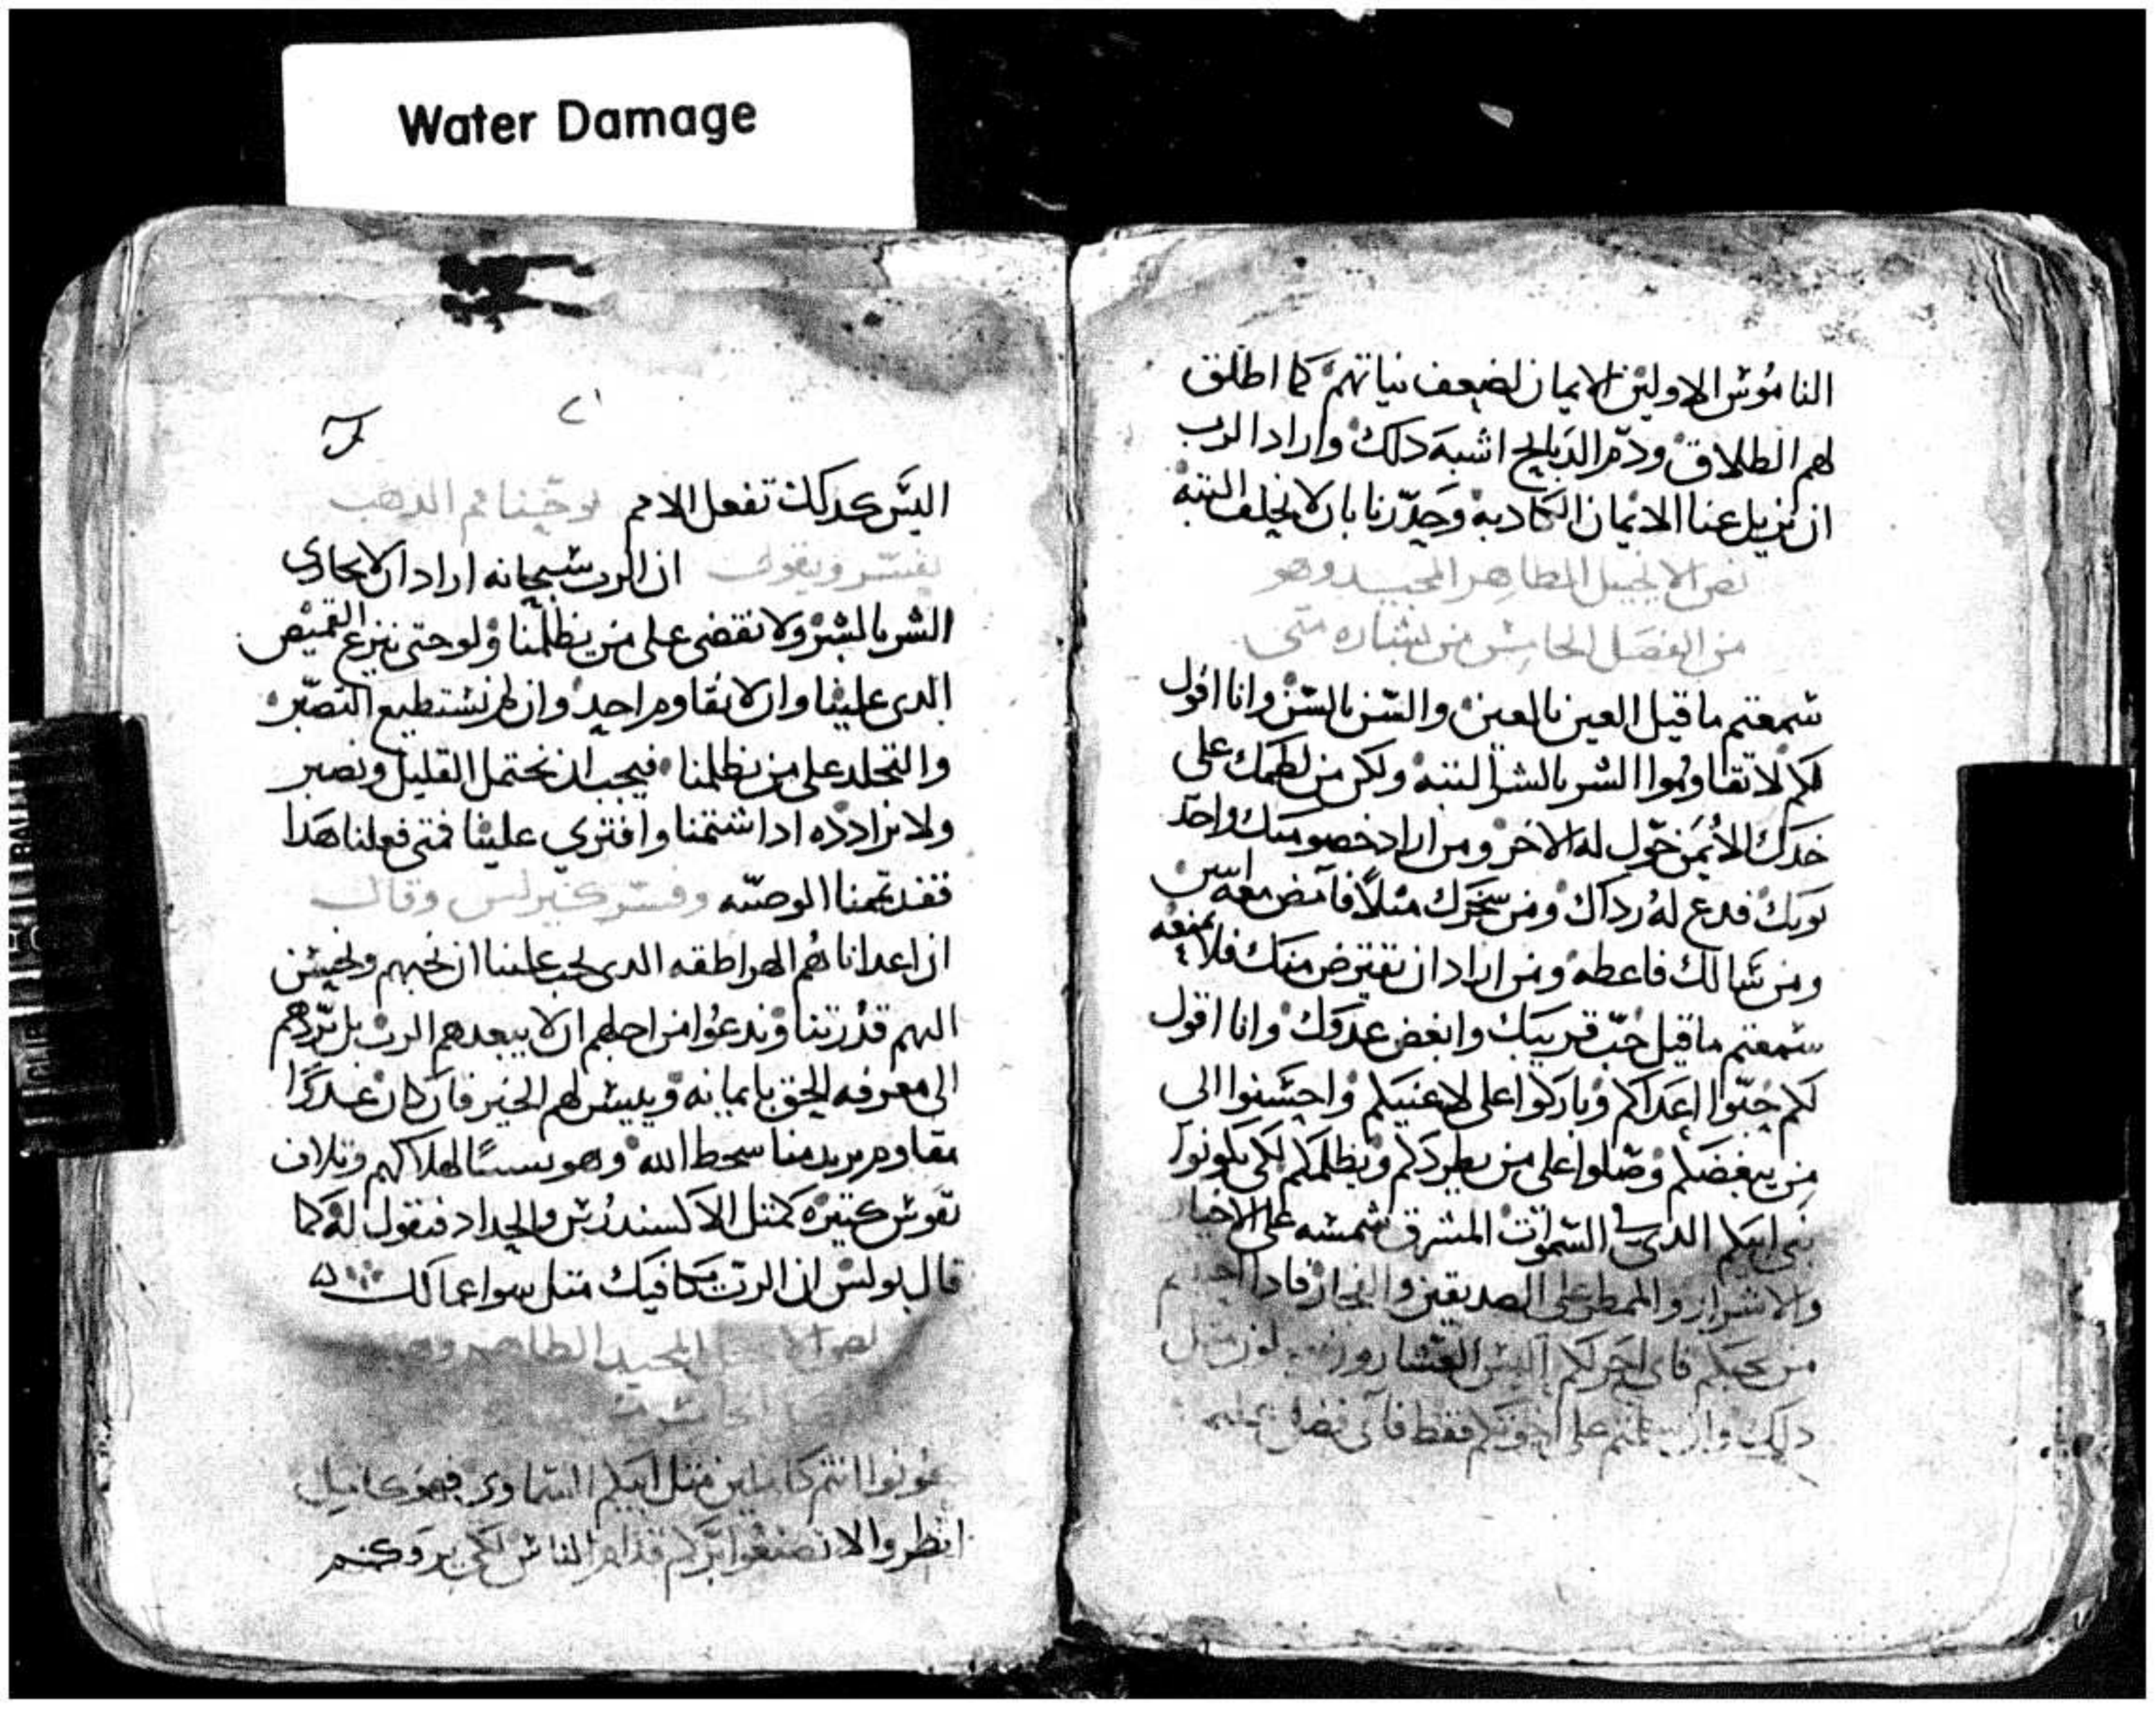 Water Damage
الناموس الاولين الايمان لضعف نياتهم كما اطلق
لهم الطلاق ودم الدبايح اشبه دلك واراد الرب
ان يزيل عنا الايمان الكادبه وحدرنا بان لا نحلف البته
نص الانجيل الطاهر المجيد وهو
من الفصل الخامس من بشاره متى
سمعتم ما قيل العين بالعين والسن بالسن وانا اقول
لكم لا تقاوموا الشر بالشر البته ولكن من لطمك على
خدك الايمن حول له الاخر ومن اراد خصومتك واخد
توبك فدع له رداك ومن سخرك ميلا فامض معه اتنين
ومن سالك فاعطه ومن اراد ان يقترض منك فلا تمنعه
سمعتم ما قيل حب قريبك وابغض عدوك وانا اقول
لكم حبوا اعداكم وباركوا على لاعنيكم واحسنوا الى
من يبغضكم وصلوا على من يطردكم ويظلمكم لكي تكونوا
بني ابيكم الدي في السموات المشرق شمسه على الاخيار
والاشرار والممطر على الصديقين والفجار فادا احببتم
من يحبكم فاي اجر لكم اليس العشارون مثل
دلك وان سلمتم على اخوتكم فقط فاي فضل
٢١
اليس كدلك تفعل الامم يوحنا فم الدهب
يفسر ويقول ان الرب سبحانه اراد ان لا نجازي
الشر بالشر ولا نقضي على من يظلمنا ولو حتى ينزع القميص
الدي علينا وان لا نقاوم احد وان لم نستطيع التصبر
والتجلد على من يظلمنا فيجب ان نحتمل القليل ونصبر
ولا نرادده ادا شتمنا وافتري علينا فمتى فعلنا هدا
فقد تممنا الوصيه وفسر كيرلس وقال
ان اعدانا هم الهراطقه الدي يجب علينا ان نحبهم ونحسن
اليهم قدرتنا وندعوا من اجلهم ان لا يبعدهم الرب بل يردهم
الى معرفه الحق بايمانه وييسر لهم الخير فان كان عدوا
مقاوم يريد منا سخط الله وهو سببا لهلاكهم وتلاف
نفوس كتيره كمتل الاكسندرس والحداد فنقول له كما
قال بولس ان الرب يكافيك متل سوا عمالك
المجيد الطاهر وهو
كونوا انتم كاملين متل ابيكم السماوي فهو كامل
انظروا لا تصنعوا بركم قدام الناس لكي يروكم